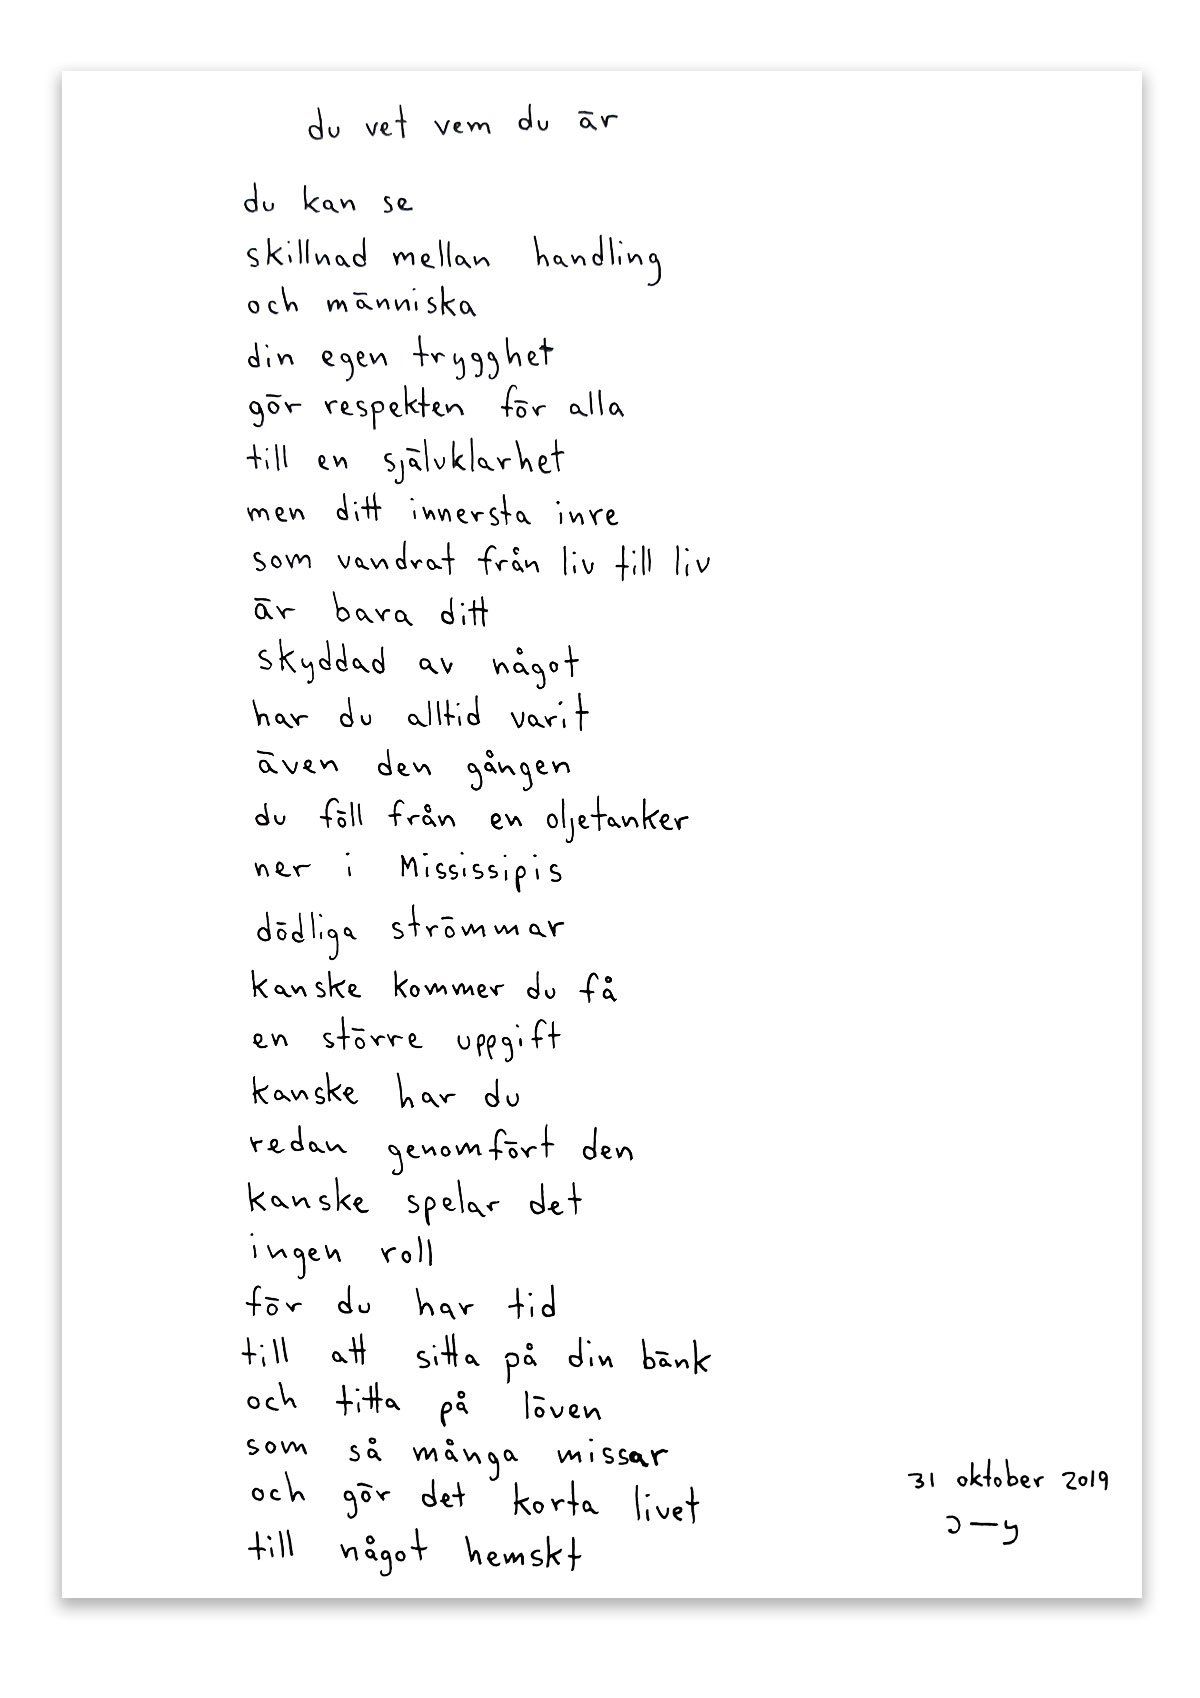 du vet vem du är
du kan se
skillnad mellan handling
och människa
din egen trygghet
gör respekten för alla
till en självklarhet
men ditt innersta inre
som vandrat från liv till liv
är bara ditt
skyddad av något
har du alltid varit
även den gången
du föll från en oljetanker
ner i Mississipis
dödliga strömmar
kanske kommer du få
en större uppgift
kanske har du
redan genomfört den
kanske spelar det
ingen roll
för du har tid
till att sitta på din bänk
och titta på löven
som så många missar
och gör det korta livet
till något hemskt
31 oktober 2019